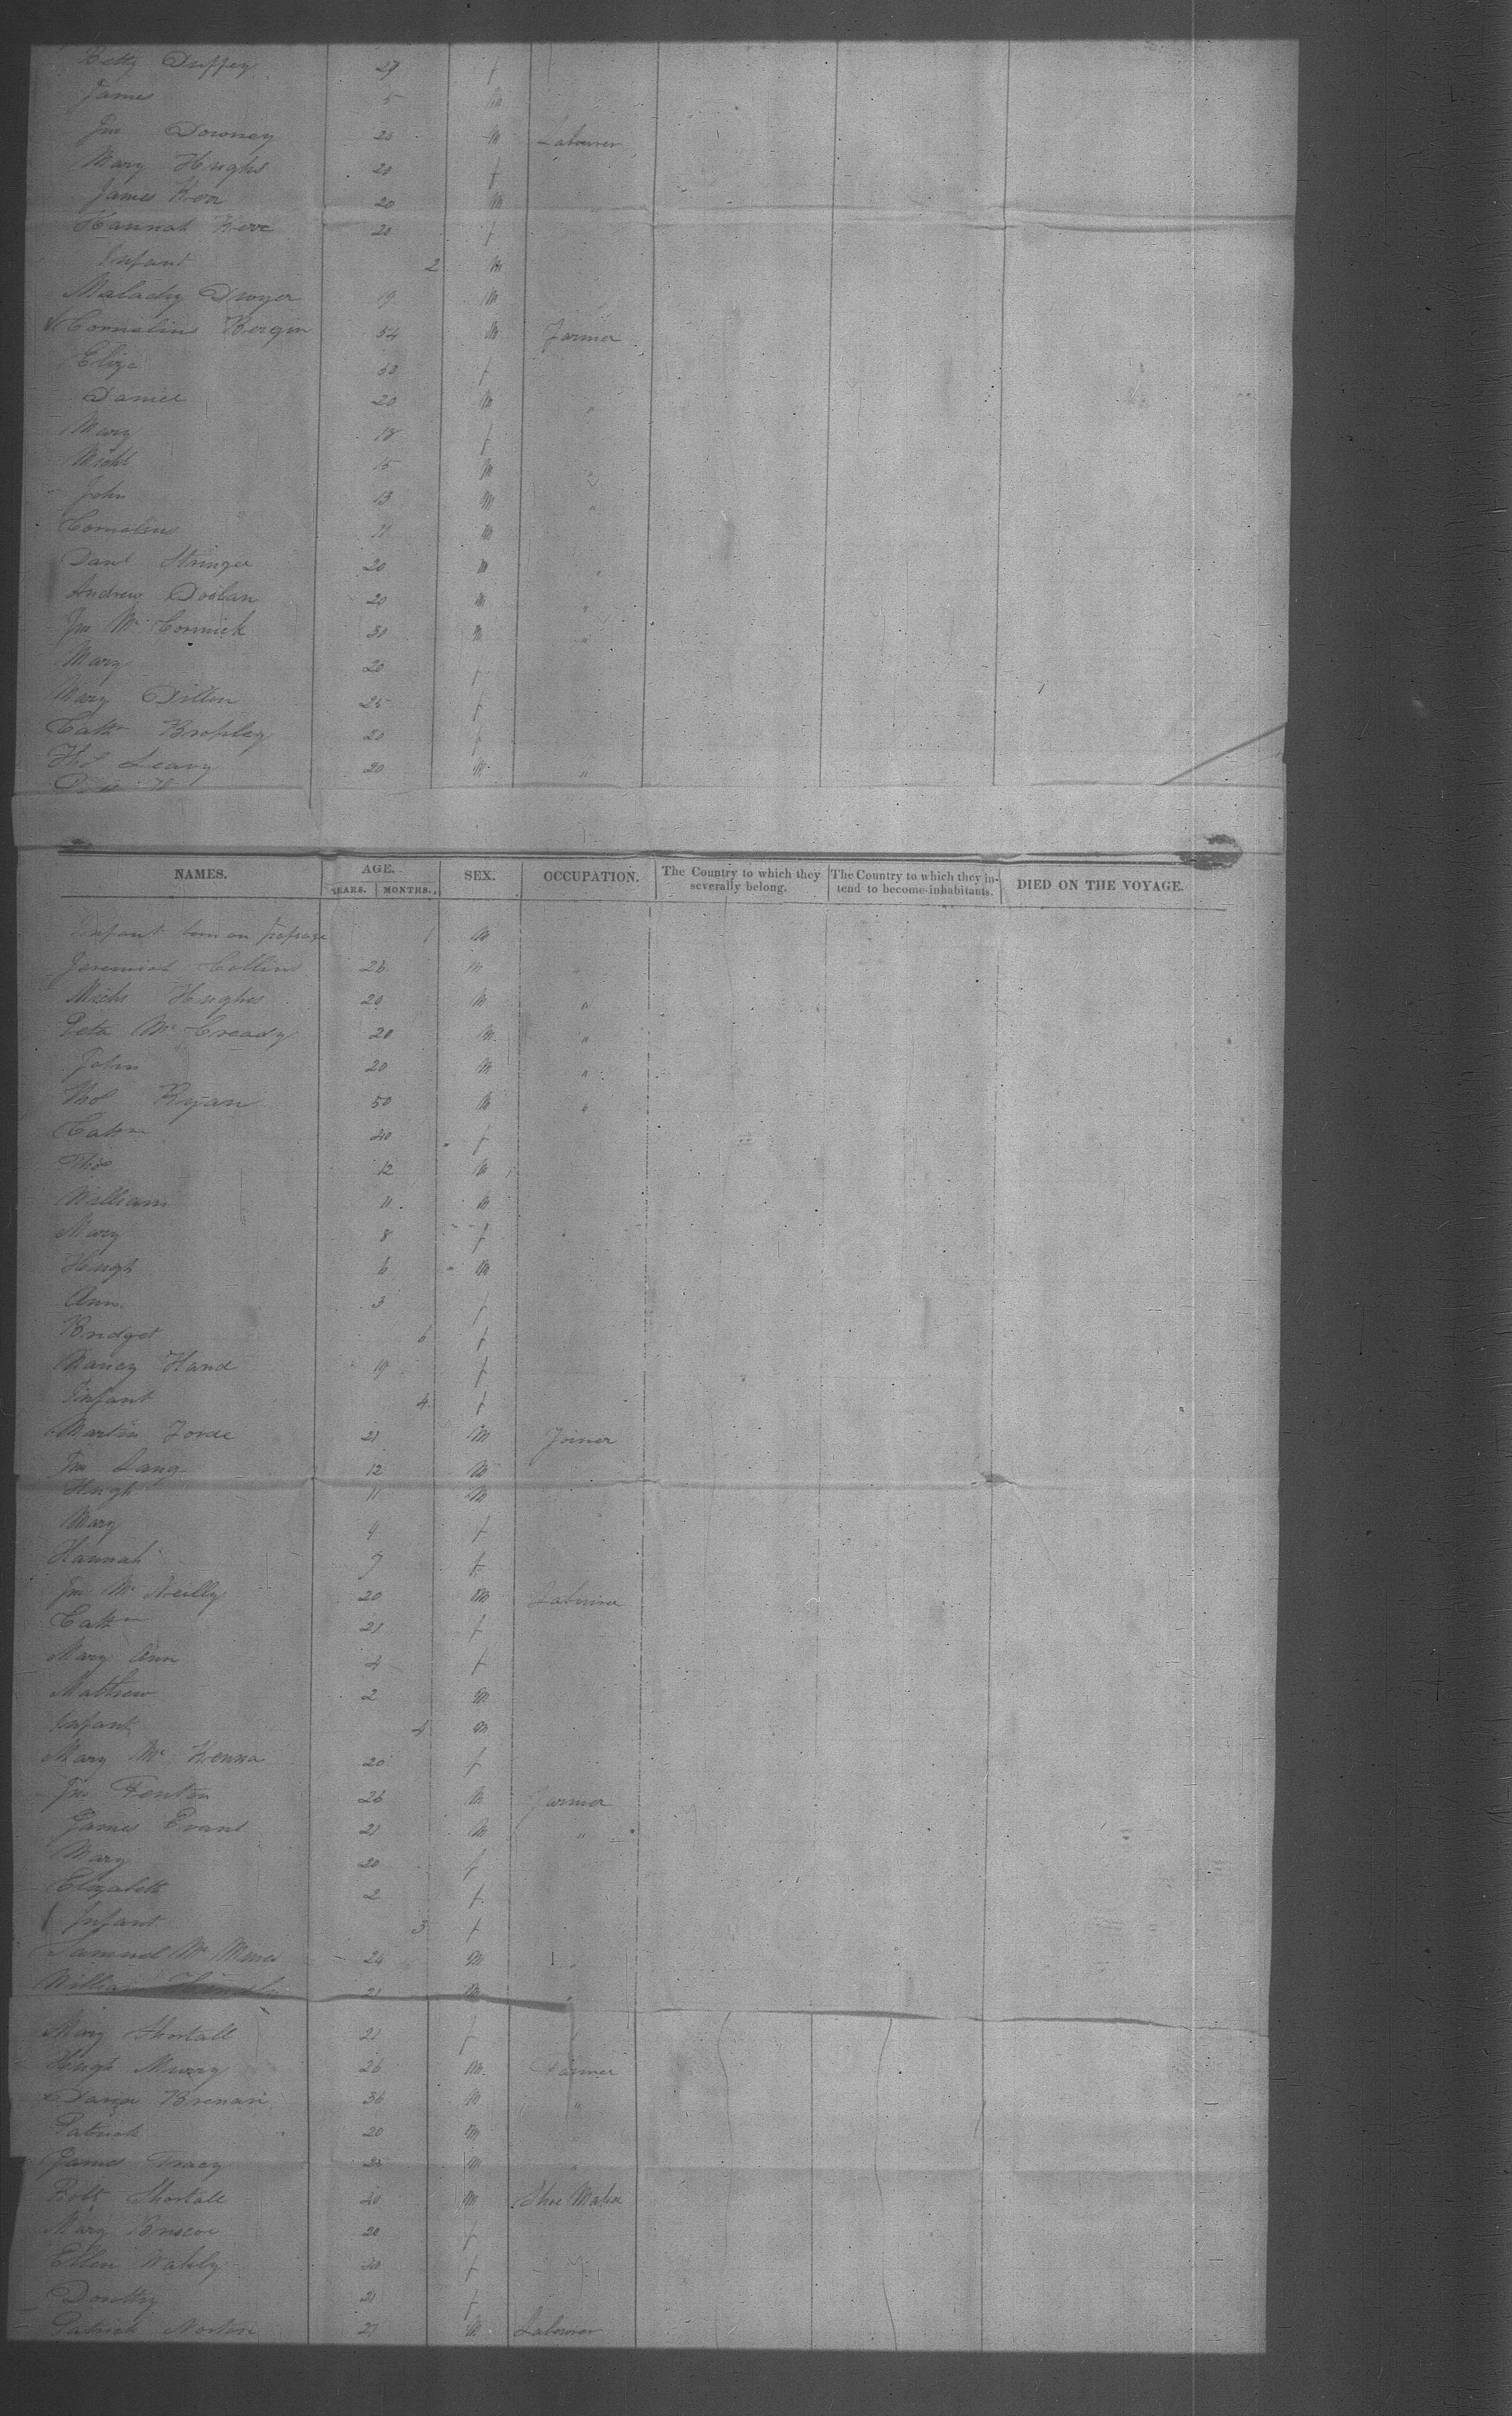 Betty Duffey 29 f
James 5 m
Jno Downey 20 m Labourer
Mary Hughs 20 f
James Kerr 20 m
Hannah Kerr 20 f
Infant 2 m
Malachy Dwyer 19 m
Cornelius Bergin 54 m Farmer
Eliza 50 f
Daniel 20 m "
Mary 18 f
Michl 15 m "
John 13 m "
Cornelius 11 m
Danl Stringer 20 m "
Andrew Doolan 20 m "
Jno Mc Cormick 30 m "
Mary 20 f
Mary Dillon 25 f
Cathn Brophey 20 f
Thos Leavy 20 m "
NAMES. AGE. SEX. OCCUPATION. The Country to which they severally belong. The Country to which they intend to become inhabitants. DIED ON THE VOYAGE.
YEARS. MONTHS.
Infant born on passage 1 m
Jeremiah Collins 26 m "
Michl Hughes 20 m "
Peter Mc Cready 20 m "
John 20 m "
Thos Ryan 50 m "
Cathn 40 f
Thos 12 m
William 11 m
Mary 8 f
Hugh 6 m
Ann 3 f
Bridget 6 f
Nancy Hand 19 f
Infant 4 f
Martin Forde 21 m Joiner
Jno Lang 12 m
Hugh 11 m
Mary 9 f
Hannah 7 f
Jno Mc Neilly 20 m Labourer
Cathn 21 f
Mary Ann 4 f
Mathew 2 m
Infant 4 m
Mary Mc Kenna 20 f
Jno Fenton 26 m Farmer
James Evans 21 m "
Mary 20 f
Elizabeth 2 f
Infant 3 f
Samuel Mc 24 m "
William 21 m "
Mary Shortall 21 f
Hugh Murry 26 m Farmer
Brenan 36 m "
Patrick 20 m
James Tracy m "
Robt Shortall 20 m Shoe Maker
Mary Briscoe 20 f
Ellen f
Dorothy 21 f
Patrick Norton 27 m Labourer